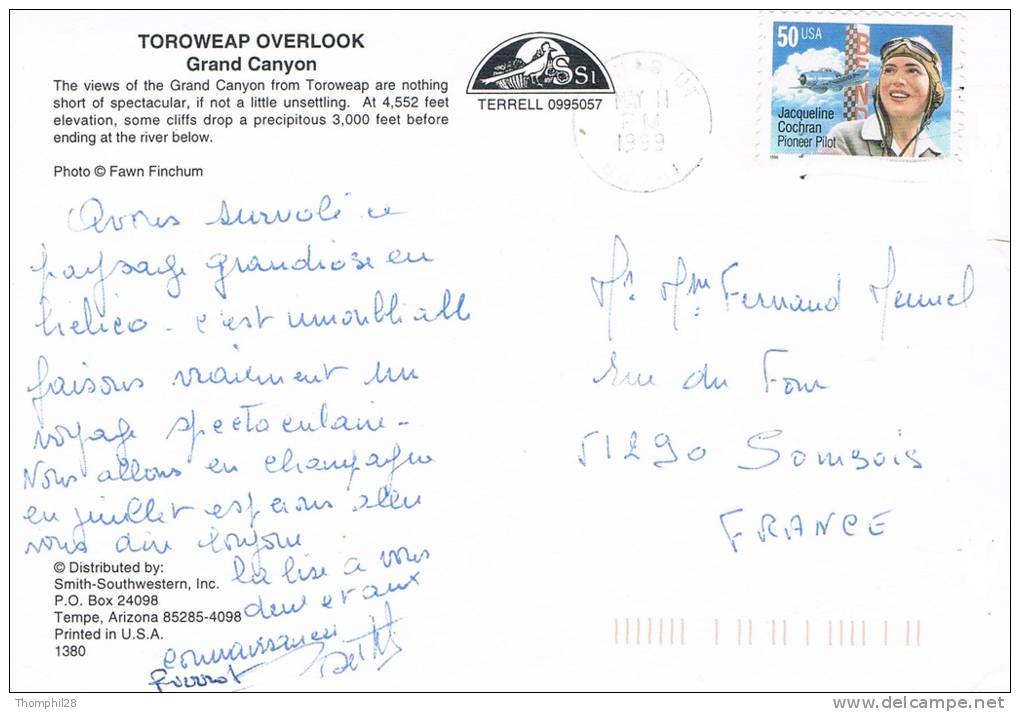 TOROWEAP OVERLOOK
Grand Canyon
The views of the Grand Canyon from Toroweap are nothing
short of spectacular, if not a little unsettling. At 4,552 feet
elevation, some cliffs drop a precipitous 3,000 feet before
ending at the river below.
Photo © Fawn Finchum
SSI
TERRELL 0995057
MAY 11
PM
1999
50 USA
Jacqueline
Cochran
Pioneer Pilot
Avons survolé ce
paysage grandiose en
hélico - c'est inoubliable
faisons vraiment un
voyage spectaculaire -
Nous allons en champagne
en juillet espérons aller
vous dire bonjour
la bise à vous
deux et aux
connaissances
Pierrot
Mr. Mme Fernand
rue du Four
51290 Somsois
FRANCE
© Distributed by:
Smith-Southwestern, Inc.
P.O. Box 24098
Tempe, Arizona 85285-4098
Printed in U.S.A.
1380
Thomphil28
www.delcampe.net